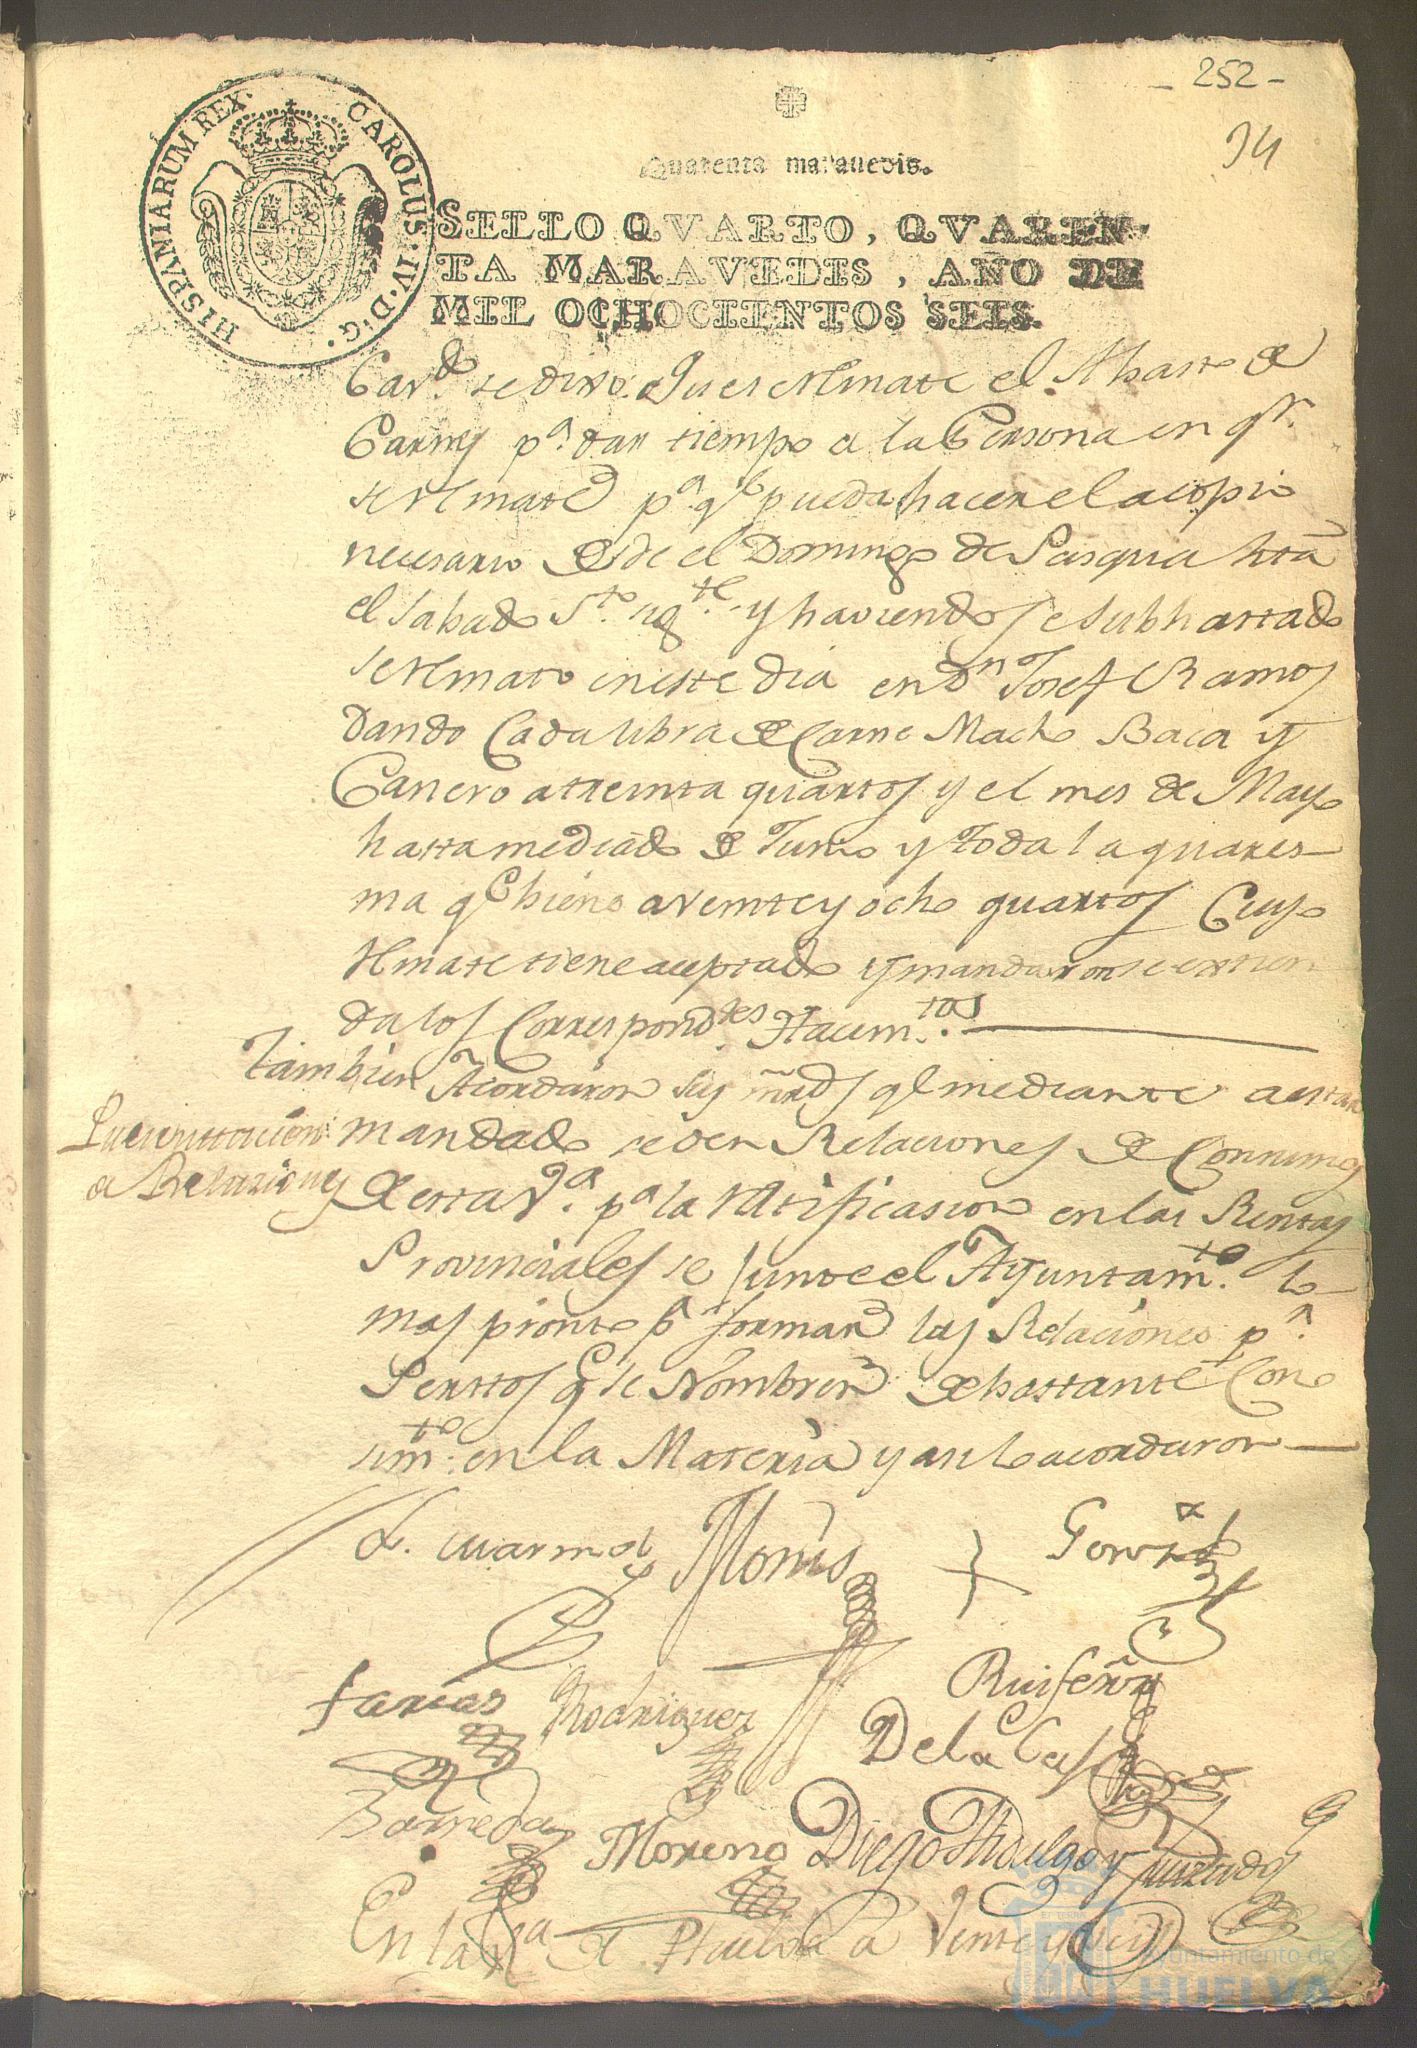 - 252 -
94
Quarenta marauedis.
HISPANIARUM REX. CAROLUS. IV. D. G.
SELLO QVARTO, QVAREN-
TA MARAVEDIS, AÑO DE
MIL OCHOCIENTOS SEIS.
Cav.do se dixo: Que se rremate el Abasto de
Carnes p.a dar tiempo a la Persona en q.n
se rremate p.a q.e pueda hacer el acopio
necesario desde el Domingo de Pasqua hta
el Sabado S.to sig.te y haviendose subhastado
se rremato en este dia en D.n Josef Ramos
Dando Cada libra de Carne Macho Baca y
Carnero a treinta quartos y el mes de Mayo
hasta mediado de Junio y toda la quares-
ma q.e biene a veinte y ocho quartos Cuyo
rremate tiene aceptado y mandaron se extien
da los Correspond.tes Hacim.tos
Tambien Acordaron sus mrds q.e mediante a estar
mandado se den Relaciones de Consumos
a Relaziones
de esta V.a p.a la rratificasion en las Rentas
Provinciales se junte el Ayuntam.to lo
mas pronto p.a formar las Relaciones p.r
Peritos q.e se Nombren de bastante Cono
sim.to en la Materia y asi lo acordaron
Monis
Gonz.z
Farias Rodriguez
Ruiseñor
De la Cassa
Barreda
Moreno Diego Hidalgo y Hurtado
En la V.a de Huelva a Veinte y seis
Ayuntamiento de
HUELVA